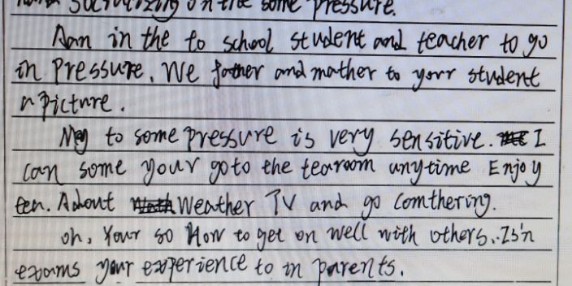 on the some pressure.
Aan in the to school student and teacher to go
in Pressure. We father and mather to your student
a picture.
May to some pressure is very sensitive. I
can some your goto the tearoom anytime Enjoy
tea. Adout Weather TV and go comthering.
oh, Your so How to get on well with others. Is'n
exams your experience to in parents.